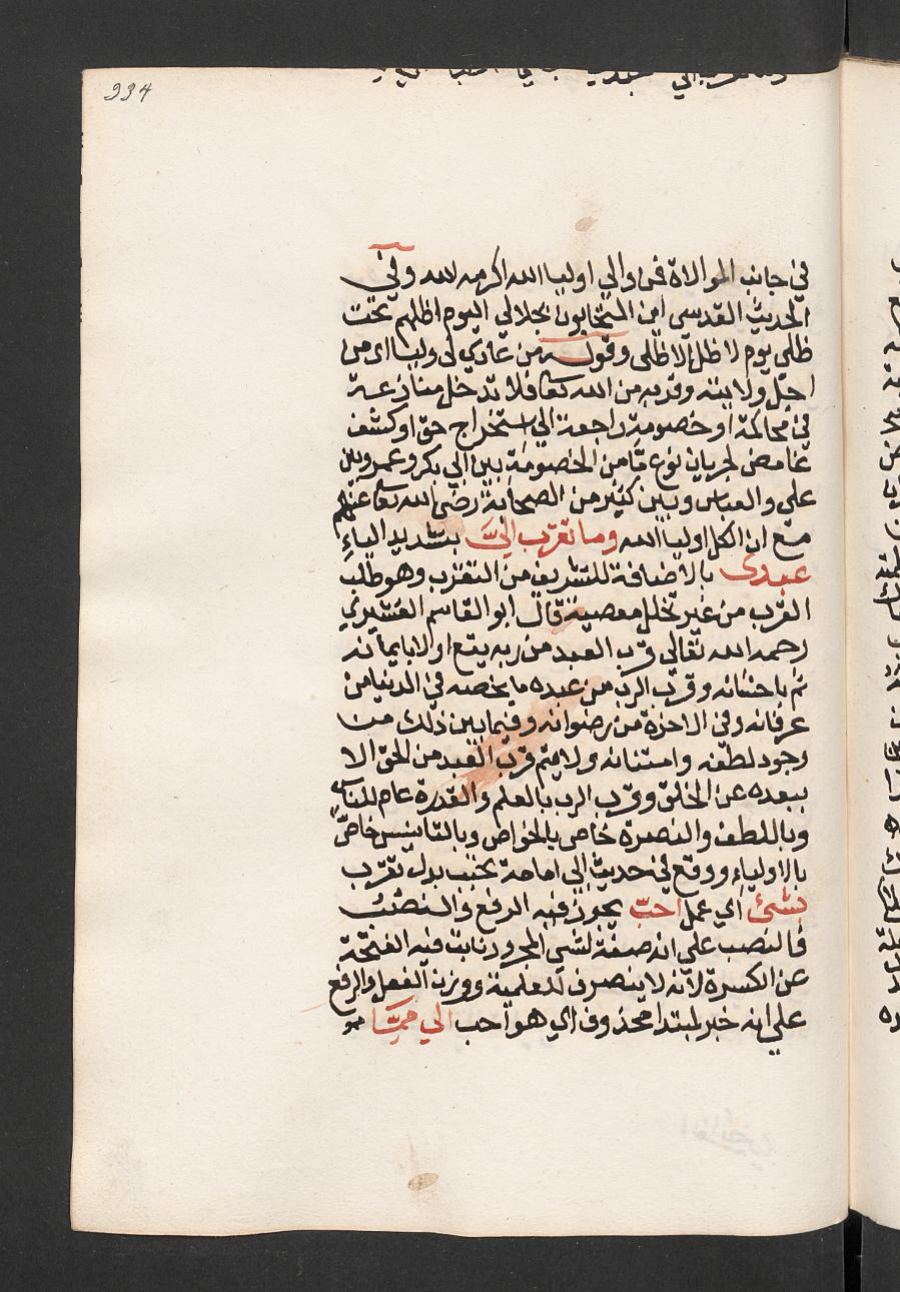 334
في جانب الموالاة فمن والى اوليا الله اكرمه الله وفي
الحديث القدسي اين المتحابون بجلالي اليوم اظلهم تحت
ظلي يوم لا ظل الا ظلي وقوله من عادي لي وليا اي من
اجل ولايته وقربه من الله تعا فلا تدخل منازعة
في محاكمة او خصومة راجعة الي استخراج حق او كشف
غامض لجريان نوع ما من الخصومة بين ابي بكر وعمر وبين
علي والعباس وبين كثير من الصحابة رضي الله تعا عنهم
مع ان الكل اوليا الله وما تقرب اليَّ بتشديد الياءِ
عبدى بالاضافة للتشريف من التقرب وهو طلب
القرب من غير تخلل معصية قال ابو القاسم القشيري
رحمه الله تعالي قرب العبد من ربه يقع اولا بايمانه
ثم باحسانه وقرب الرب من عبده ما يخصه في الدنيا من
عرفانه وفي الاخرة من رضوانه وفيما بين ذلك من
وجود لطفه وامتنانه ولا يتم قرب العبد من الحق الا
ببعده عن الخلق وقرب الرب بالعلم والقدرة عام للناس
وباللطف والنصرة خاص بالخواص وبالتانيس خاصٌّ
بالاولياءِ ووقع في حديث ابي امامة يتحبب بدل تقرّب
بشئ اي عمل احبّ يجوز فيه الرفع والنصب
فالنصب علي انه صفة لشي المجرور نابت فيه الفتحة
عن الكسرة لانه لا ينصرف للعلمية ووزن الفعل والرفع
علي انه خبر لمبتدا محذوف اي هو احب الي ممّا